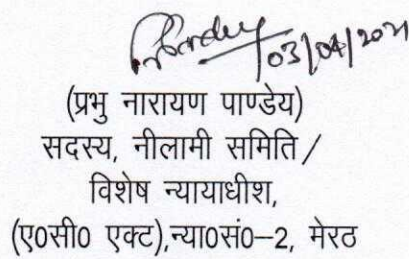 03/04/2021
(प्रभु नारायण पाण्डेय)
सदस्य, नीलामी समिति /
विशेष न्यायाधीश,
(ए0सी0 एक्ट),न्या0सं0–2, मेरठ